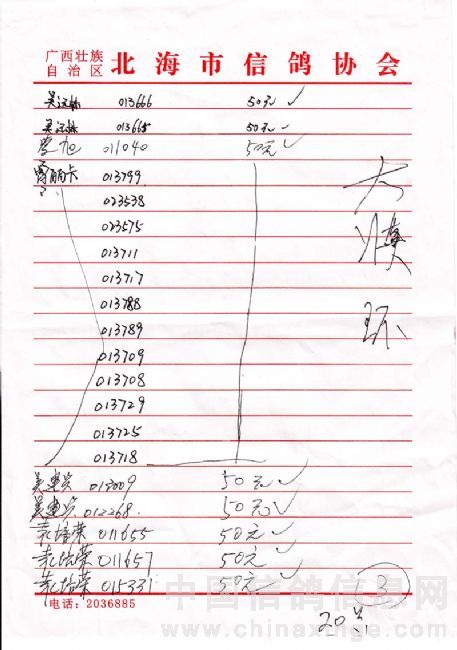 广西壮族
自治区 北海市信鸽协会
013666 50元
013665 50元
李旭 011040 50元
013799
023538
023575
013711
013717
013788
013789
013709
013708
013729
013725
013718
大
环
吴 013009 50元
吴 012268 50元
袁培荣 011655 50元
袁培荣 011657 50元
袁培荣 015331 50元
(电话:2036885
3
20
中国信鸽信息网
www.chinaxinge.com